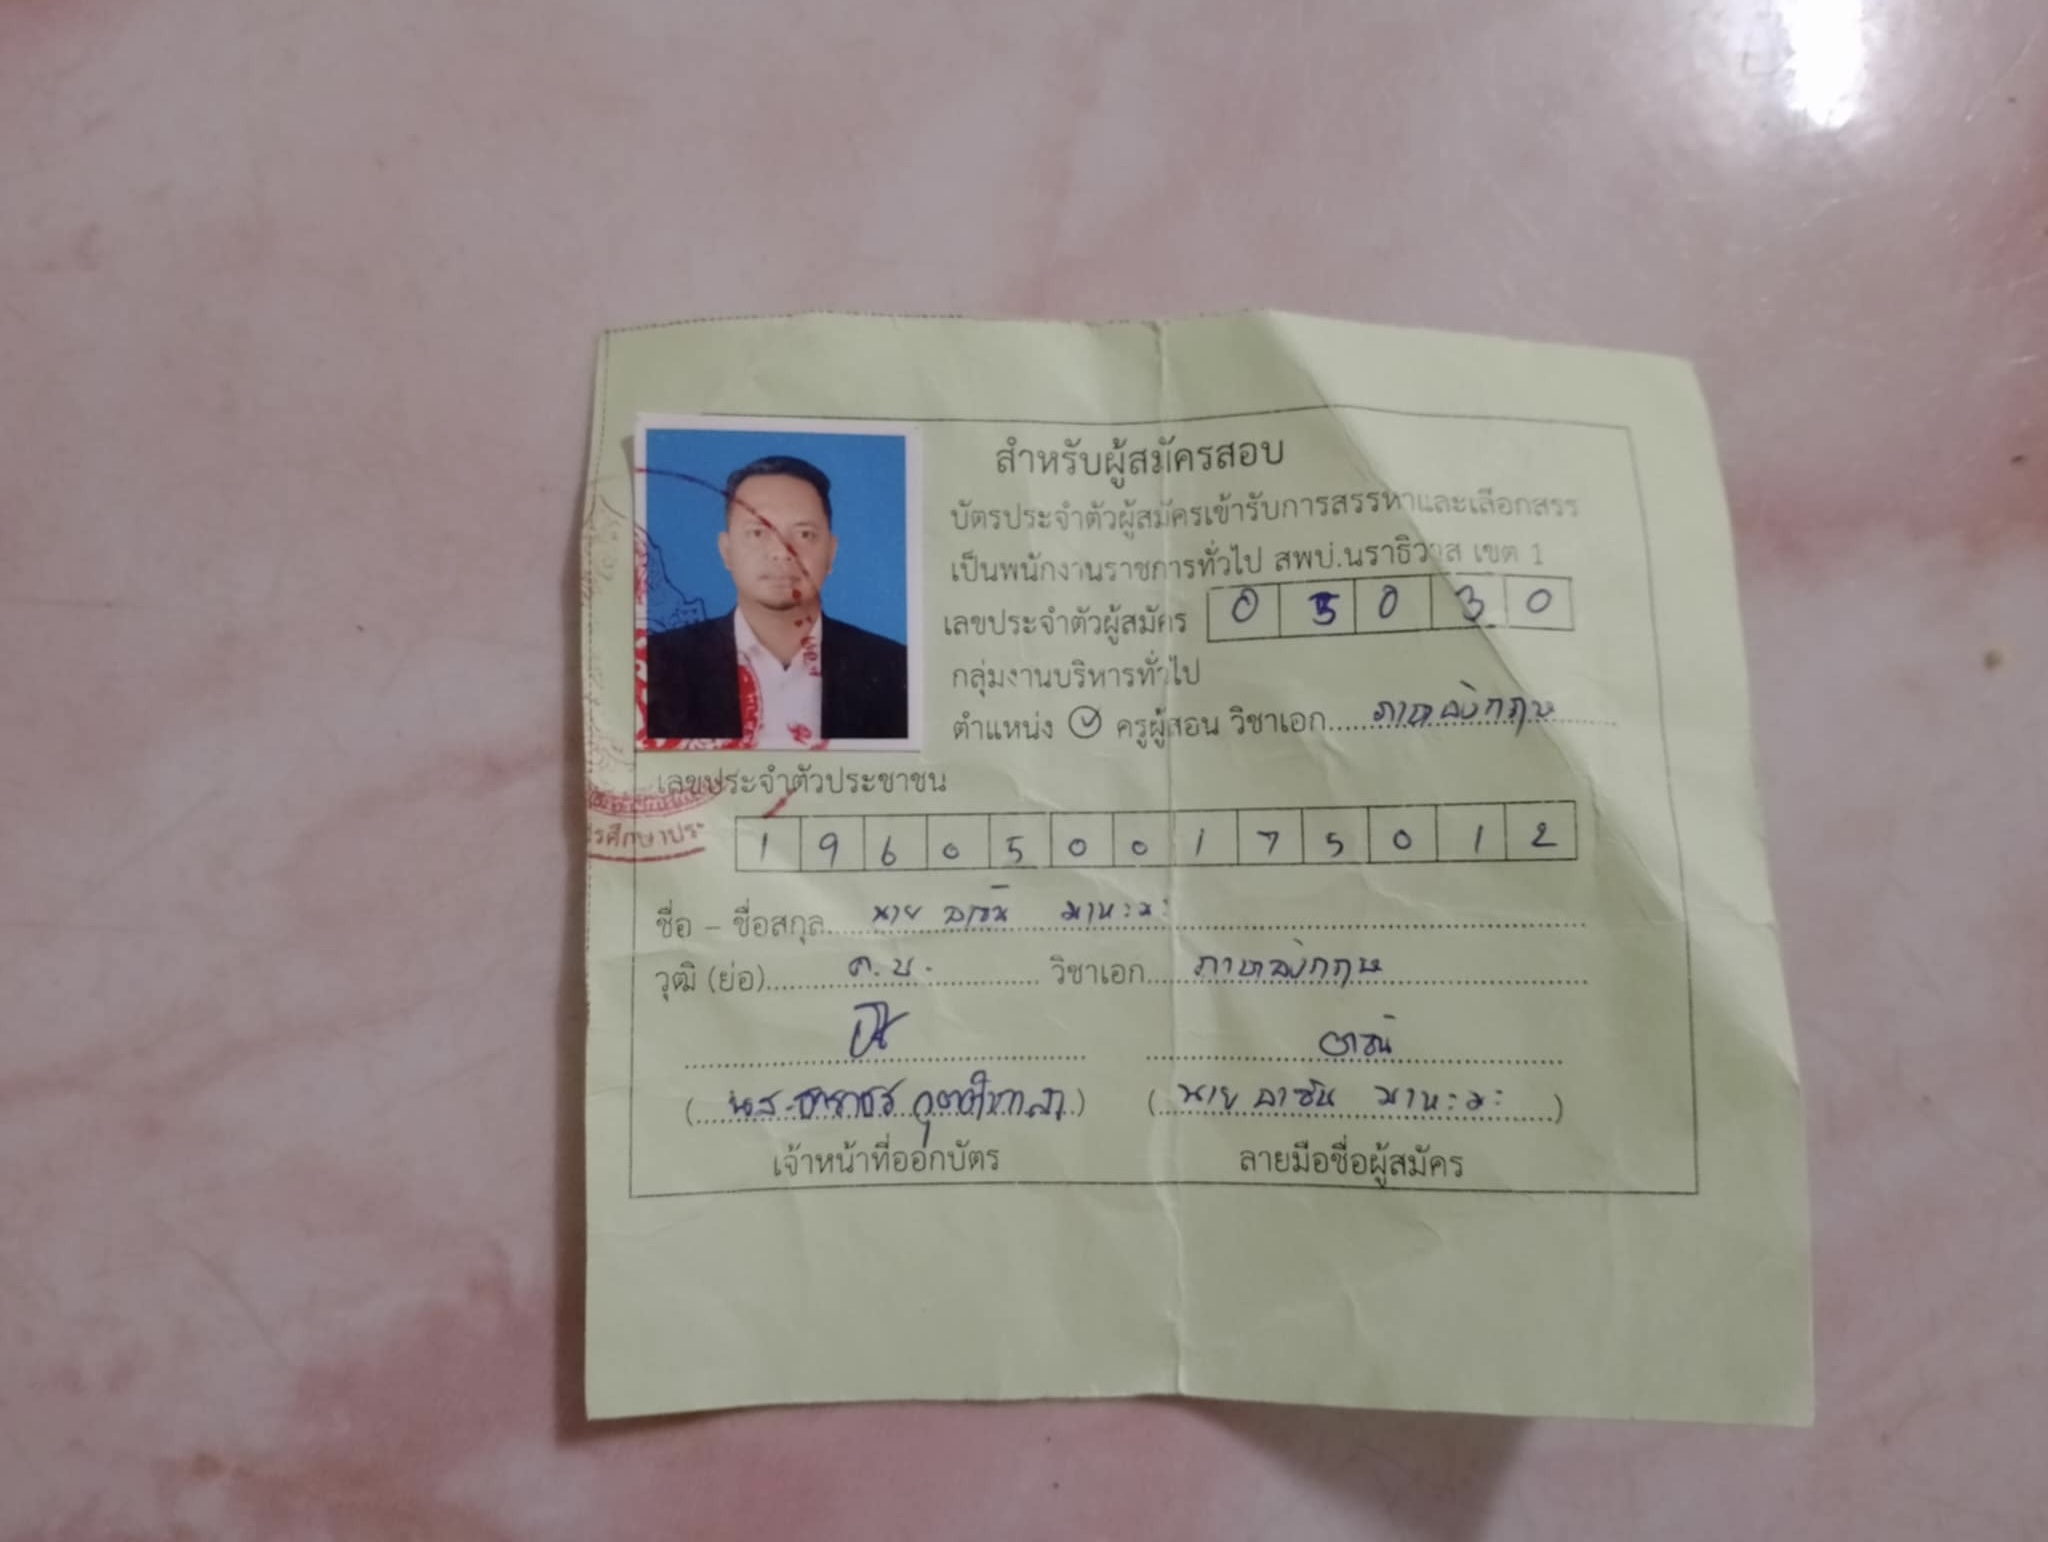 สำหรับผู้สมัครสอบ
บัตรประจำตัวผู้สมัครเข้ารับการสรรหาและเลือกสรร
เป็นพนักงานราชการทั่วไป สพป.นราธิวาส เขต 1
เลขประจำตัวผู้สมัคร 0 5 0 3 0
กลุ่มงานบริหารทั่วไป
ตำแหน่ง ครูผู้สอน วิชาเอก ภาษาอังกฤษ
เลขประจำตัวประชาชน
1 9 6 0 5 0 0 1 7 5 0 1 2
รศึกษาประ
ชื่อ – ชื่อสกุล นาย อาซัน มาหะมะ
วุฒิ (ย่อ) ค.บ. วิชาเอก ภาษาอังกฤษ
อาซัน
(น.ส.) (นาย อาซัน มาหะมะ)
เจ้าหน้าที่ออกบัตร ลายมือชื่อผู้สมัคร